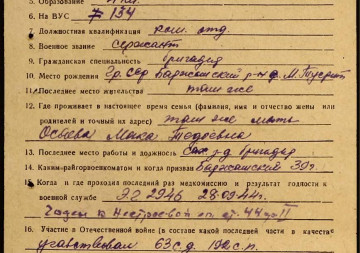 5. Образование
6. На ВУС 134
7. Должностная квалификация ком. отд.
8. Военное звание сержант
9. Гражданская специальность бригадир
10. Место рождения Гр. ССР р-н
11. Последнее место жительства там же
12. Где проживает в настоящее время семья (фамилия, имя и отчество жены или
родителей и точный их адрес) там же мать
13. Последнее место работы и должность бригадир
14. Каким райгорвоенкоматом и когда призван 39г.
15. Когда и где проходил последний раз медкомиссию и результат годности к
военной службе ЭГ 2946 28.09.44г.
Годен к Нестроевой по ст. 44 гр II
16. Участие в Отечественной войне (в составе какой последней части в качестве
участвовал 63 с.д. с.п.